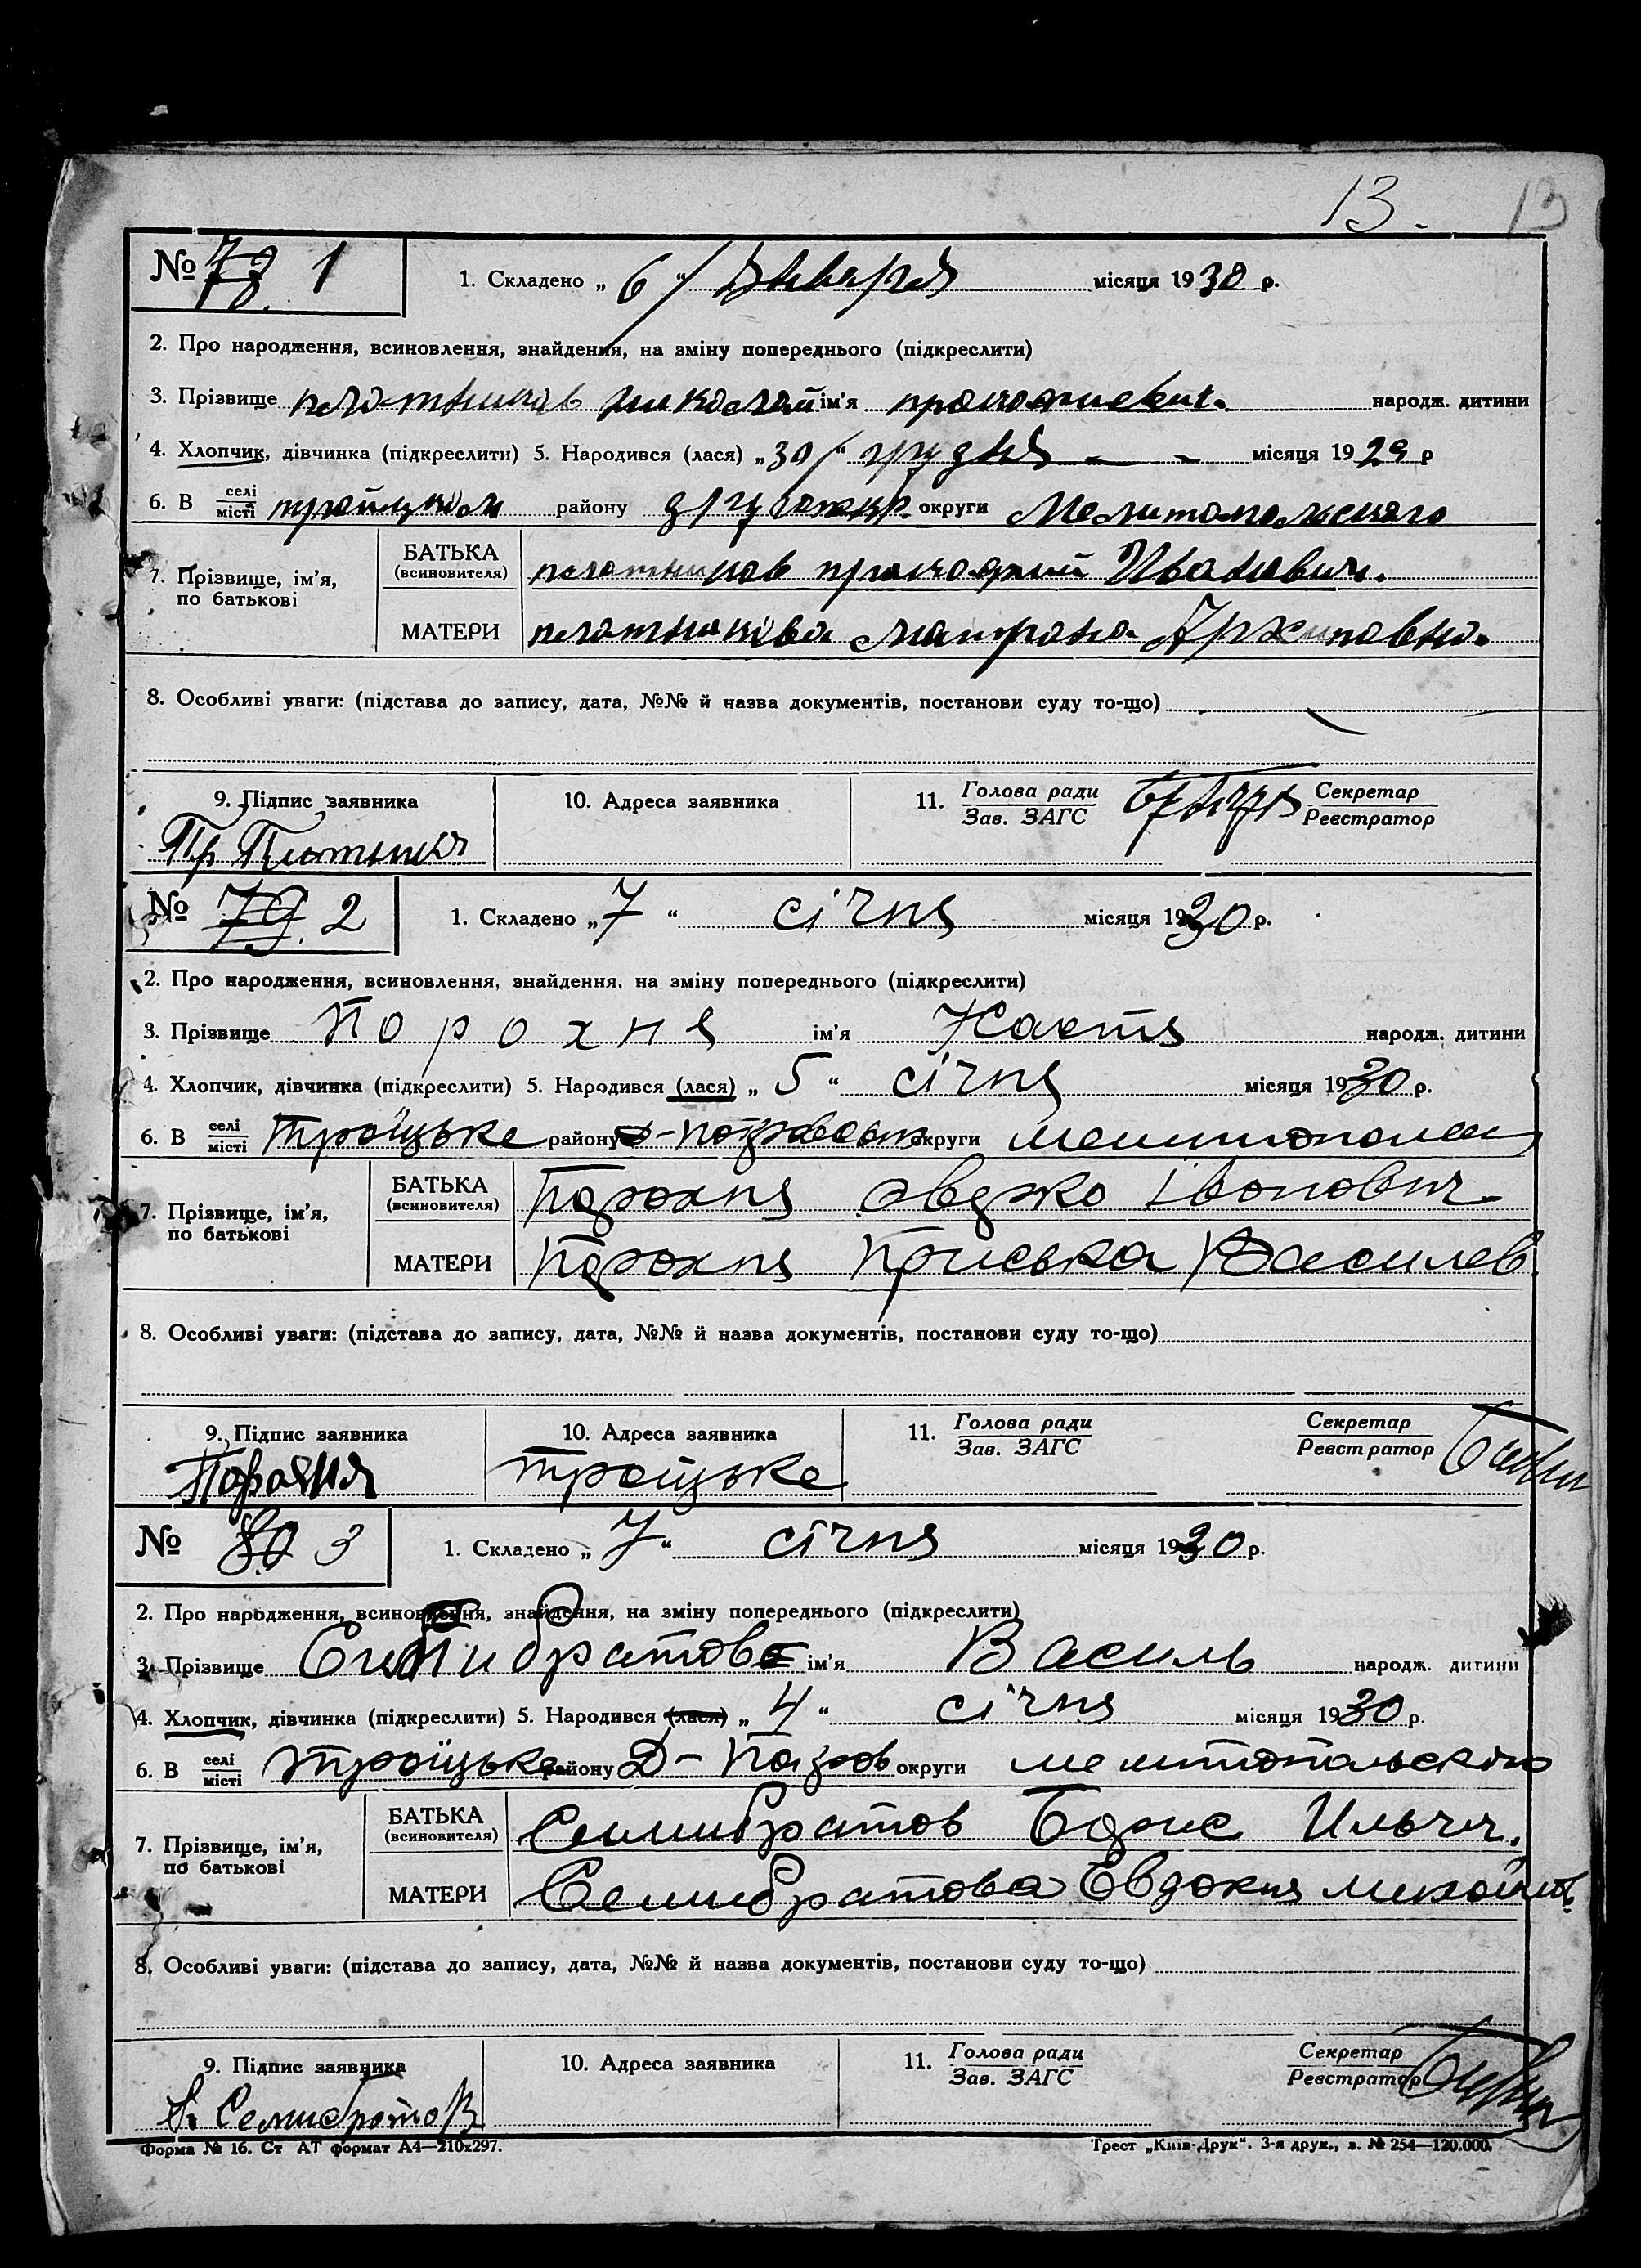 13.
№ 78. 1 1. Складено „ 6 “ Января місяця 1930 р.
2. Про народження, всиновлення, знайдення, на зміну попереднього (підкреслити)
3. Прізвище николай ім’я народж. дитини
4. Хлопчик, дівчинка (підкреслити) 5. Народився (лася) „ 30 “ грудня місяця 1929 р
6. В селі місті тройцком району округи Мелитопольского
7. Прізвище, ім’я, по батькові
БАТЬКА (всиновителя) Иванович.
МАТЕРИ Архиповна.
8. Особливі уваги: (підстава до запису, дата, №№ й назва документів, постанови суду то-що)
9. Підпис заявника 10. Адреса заявника 11. Голова ради Зав. ЗАГС Секретар Реєстратор
№ 79. 2 1. Складено „ 7 “ січня місяця 1930 р.
2. Про народження, всиновлення, знайдення, на зміну попереднього (підкреслити)
3. Прізвище Порохня ім’я Настя народж. дитини
4. Хлопчик, дівчинка (підкреслити) 5. Народився (лася) „ 5 “ січня місяця 1930 р.
6. В селі місті Троїцьке району округи
7. Прізвище, ім’я, по батькові
БАТЬКА (всиновителя) Порохня Іванович
МАТЕРИ Порохня Приська Василев.
8. Особливі уваги: (підстава до запису, дата, №№ й назва документів, постанови суду то-що)
9. Підпис заявника 10. Адреса заявника 11. Голова ради Зав. ЗАГС Секретар Реєстратор
Порохня Троїцьке
№ 80 3 1. Складено „ 7 “ січня місяця 1930 р.
2. Про народження, всиновлення, знайдення, на зміну попереднього (підкреслити)
3. Прізвище ім’я Василь народж. дитини
4. Хлопчик, дівчинка (підкреслити) 5. Народився (лася) „ 4 “ січня місяця 1930 р.
6. В селі місті Троїцьке району Д-Покров округи
7. Прізвище, ім’я, по батькові
БАТЬКА (всиновителя) Семибратов Борис Ильич.
МАТЕРИ Семибратова Евдокия
8. Особливі уваги: (підстава до запису, дата, №№ й назва документів, постанови суду то-що)
9. Підпис заявника 10. Адреса заявника 11. Голова ради Зав. ЗАГС Секретар Реєстратор
Семибратов
Форма № 16. Ст АТ формат А4—210х297. Трест „Київ-Друк“. 3-я друк., з. № 254—120.000.